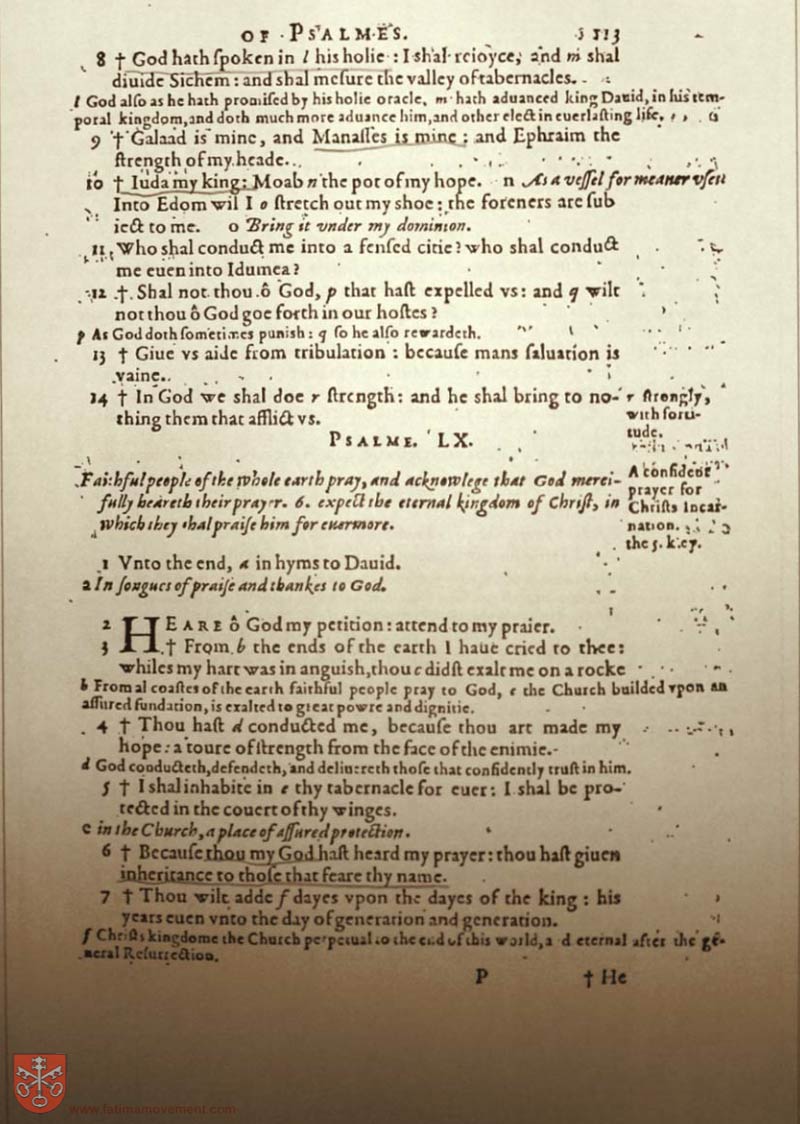 OF PSALMES. 113
8 † God hath ſpoken in l his holie : I shal reioyce, and m shal
diuide Sichem : and shal meſure the valley of tabernacles.
l God alſo as he hath promiſed by his holie oracle, m hath aduanced king Dauid, in his tem-
poral kingdom, and doth much more aduance him, and other elect in euerlaſting life.
9 † Galaad is mine, and Manaſſes is mine : and Ephraim the
ſtrength of my heade.
10 † Iuda my king: Moab n the pot of my hope. n As a veſſel for meaner vſes
Into Edom wil I o ſtretch out my shoe : the foreners are ſub
iect to me. o Bring it vnder my dominion.
11 Who shal conduct me into a fenſed citie? who shal conduct
me euen into Idumea?
12 † Shal not thou ô God, p that haſt expelled vs: and q wilt
not thou ô God goe forth in our hoſtes?
p As God doth ſometimes punish : q ſo he alſo rewardeth.
13 † Giue vs aide from tribulation : becauſe mans ſaluation is
vaine.
14 † In God we shal doe r ſtrength: and he shal bring to no-
thing them that afflict vs.
r ſtrongly,
with forti-
tude.
PSALME. LX.
Faithful people of the whole earth pray, and acknowlege that God merci-
fully heareth their prayer. 6. expect the eternal kingdom of Chriſt, in
which they shal praiſe him for euermore.
A confident
prayer for
Chriſts Incar-
nation.
the 5. key.
1 Vnto the end, a in hyms to Dauid.
a In ſongues of praiſe and thankes to God.
2 HEARE ô God my petition: attend to my praier.
3 † From b the ends of the earth I haue cried to thee:
whiles my hart was in anguish, thou c didſt exalt me on a rocke
b From al coaſtes of the earth faithful people pray to God, c the Church builded vpon an
aſſured fundation, is exalted to great powre and dignitie.
4 † Thou haſt d conducted me, becauſe thou art made my
hope: a toure of ſtrength from the face of the enimie.
d God conducteth, defendeth, and deliuereth thoſe that confidently truſt in him.
5 † I shal inhabite in e thy tabernacle for euer: I shal be pro-
tected in the couert of thy winges.
e in the Church, a place of aſſured protection.
6 † Becauſe thou my God haſt heard my prayer: thou haſt giuen
inheritance to thoſe that feare thy name.
7 † Thou wilt adde f dayes vpon the dayes of the king : his
years euen vnto the day of generation and generation.
f Chriſts kingdome the Church perpetual to the end of this world, a d eternal after the ge-
neral Reſurrection.
P † He
www.fatimamovement.com